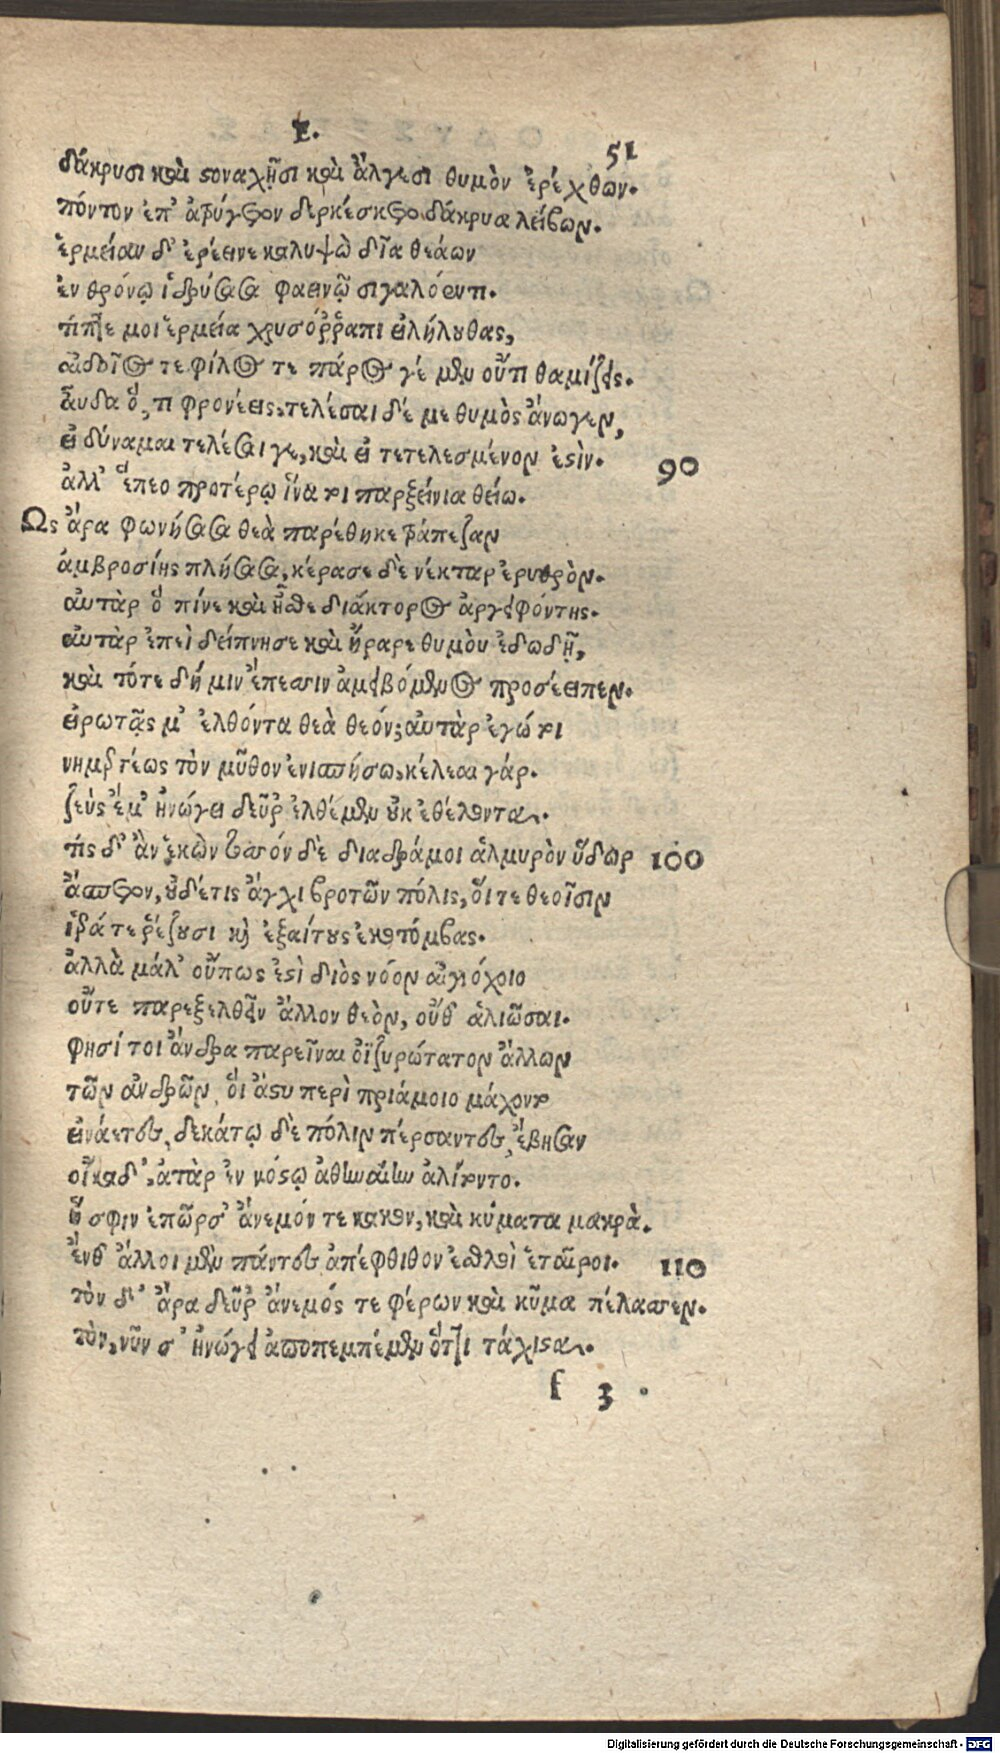 Ε.
51
δάκρυσι καὶ στοναχῇσι καὶ ἄλγεσι θυμὸν ἐρέχθων.
πόντον ἐπ' ἀτρύγετον δερκέσκετο δάκρυα λείβων.
ἑρμείαν δ' ἐρέεινε καλυψὼ δῖα θεάων
ἐν θρόνῳ ἱδρύσασα φαεινῷ σιγαλόεντι.
τίπτε μοι ἑρμεία χρυσόῤῥαπι εἰλήλουθας,
αἰδοῖος τε φίλος τε πάρος γέ μὲν οὔτι θαμίζεις.
ἄυδα ὅ, τι φρονέεις. τελέσαι δέ με θυμὸς ἄνωγεν,
εἰ δύναμαι τελέσαι γε, καὶ εἰ τετελεσμένον ἐστὶν. 90
ἀλλ' ἕπεο προτέρῳ ἵνα τοι παρξείνια θείω.
Ως ἄρα φωνήσασα θεὰ παρέθηκε τράπεζαν
ἀμβροσίης πλήσασα, κέρασε δὲ νέκταρ ἐρυθρὸν.
αὐτὰρ ὁ πίνε καὶ ἦσθε διάκτορος ἀργειφόντης.
αὐτὰρ ἐπεὶ δείπνησε καὶ ἤραρε θυμὸν ἐδωδῇ,
καὶ τότε δή μιν ἔπεσσιν ἀμειβόμενος προσέειπεν.
εἰρωτᾷς μ' ἐλθόντα θεὰ θεόν; αὐτὰρ ἐγώ τοι
νημερτέως τὸν μῦθον ἐνισπήσω. κέλεαι γάρ.
ζεὺς ἔμ' ἠνώγει δεῦρ' ἐλθέμεν οὐκ ἐθέλοντα.
τίς δ' ἂν ἑκὼν τοσσόν δὲ διαδράμοι ἁλμυρὸν ὕδωρ 100
ἄσπετον, οὐδέ τις ἄγχι βροτῶν πόλις, οἵ τε θεοῖσιν
ἱερά τε ῥέζουσι καὶ ἐξαίτους ἑκατόμβας.
ἀλλὰ μάλ' οὔπως ἐστὶ διὸς νόον αἰγιόχοιο
οὔτε παρεξελθεῖν ἄλλον θεὸν, οὔθ' ἁλιῶσαι.
φησί τοι ἄνδρα παρεῖναι ὀϊζυρώτατον ἄλλων
τῶν ἀνδρῶν, οἳ ἄστυ περὶ πριάμοιο μάχοντο
εἰνάετες, δεκάτῳ δὲ πόλιν πέρσαντες, ἔβησαν
οἴκαδ'. ἀτὰρ ἐν νόστῳ ἀθηναίην ἀλίτοντο.
ἥ σφιν ἐπῶρσ' ἄνεμόν τε κακὸν, καὶ κύματα μακρὰ.
ἔνθ' ἄλλοι μὲν πάντες ἀπέφθιθον ἐσθλοὶ ἑταῖροι. 110
τὸν δ' ἄρα δεῦρ' ἄνεμός τε φέρων καὶ κῦμα πέλασσεν.
τὸν, νῦν σ' ἠνώγει ἀποπεμπέμεν ὅττι τάχιστα.
f 3
Digitalisierung gefördert durch die Deutsche Forschungsgemeinschaft - DFG